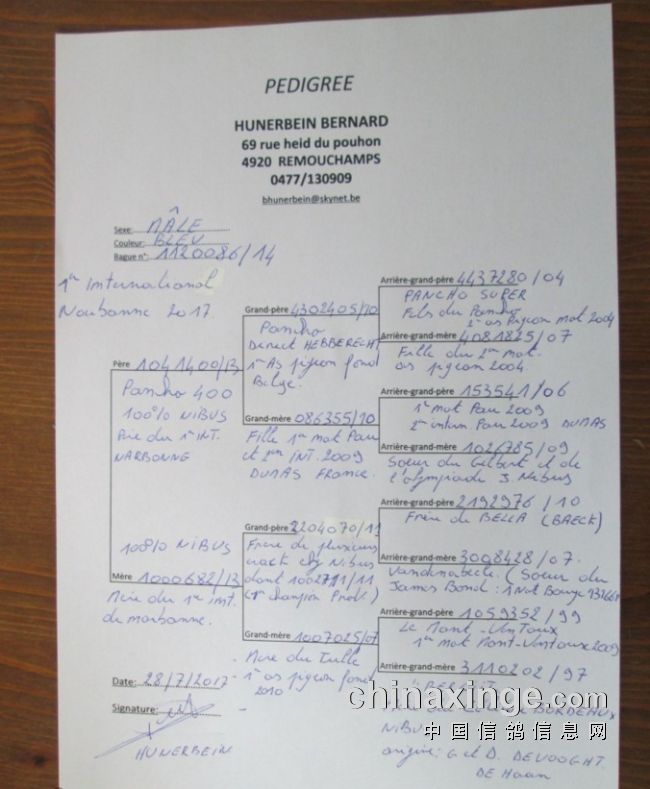 PEDIGREE
HUNERBEIN BERNARD
69 rue heid du pouhon
4920 REMOUCHAMPS
0477/130909
bhunerbein@skynet.be
Sexe: MÂLE
Couleur: BLEU
Bague n°: 1120086/14
1er International
Narbonne 2017
Père 1041400/13
Pancho 400
100% NIBUS
Père du 1er INT.
NARBONNE
100% NIBUS
Mère 1000682/13
Mère du 1er int.
de narbonne.
Grand-père 4302405/10
Pancho
Direct HEBBERECHT
1er As pigeon fond
Belge.
Grand-mère 086355/10
Fille 1er nat Pau
et 2em INT. 2009
DUMAS FRANCE.
Grand-père 2204070/11
Frère de plusieurs
crack chez Nibus
dont 1002711/11
(1er champion Prov.)
Grand-mère 1007025/07
Mère du Tulle
1er as pigeon fond
2010
Arrière-grand-père 4437280/04
PANCHO SUPER
Fils du Pancho
2em as Pigeon nat 2004
Arrière-grand-mère 4081825/07
Fille du 2em nat.
as pigeon 2004.
Arrière-grand-père 153541/06
1er nat Pau 2009
2em intern Pau 2009 DUMAS
Arrière-grand-mère 1026785/09
Soeur du Gilbert et de
l'olympiade J. Nibus
Arrière-grand-père 2192976/10
Frère de BELLA (BAECK)
Arrière-grand-mère 3008428/07.
Vandenabeele. (Soeur du
James Bond: 1 Nat Bourge
Arrière-grand-père 1059352/99
Le Mont-Ventoux
1er nat Mont-Ventoux
Arrière-grand-mère 3110202/97
BORDEAUX
NIBUS
origine: G et D. DEVOOGHT.
DE Haan
Date: 28/7/2017
Signature:
HUNERBEIN
chinaxinge.com
中国信鸽信息网